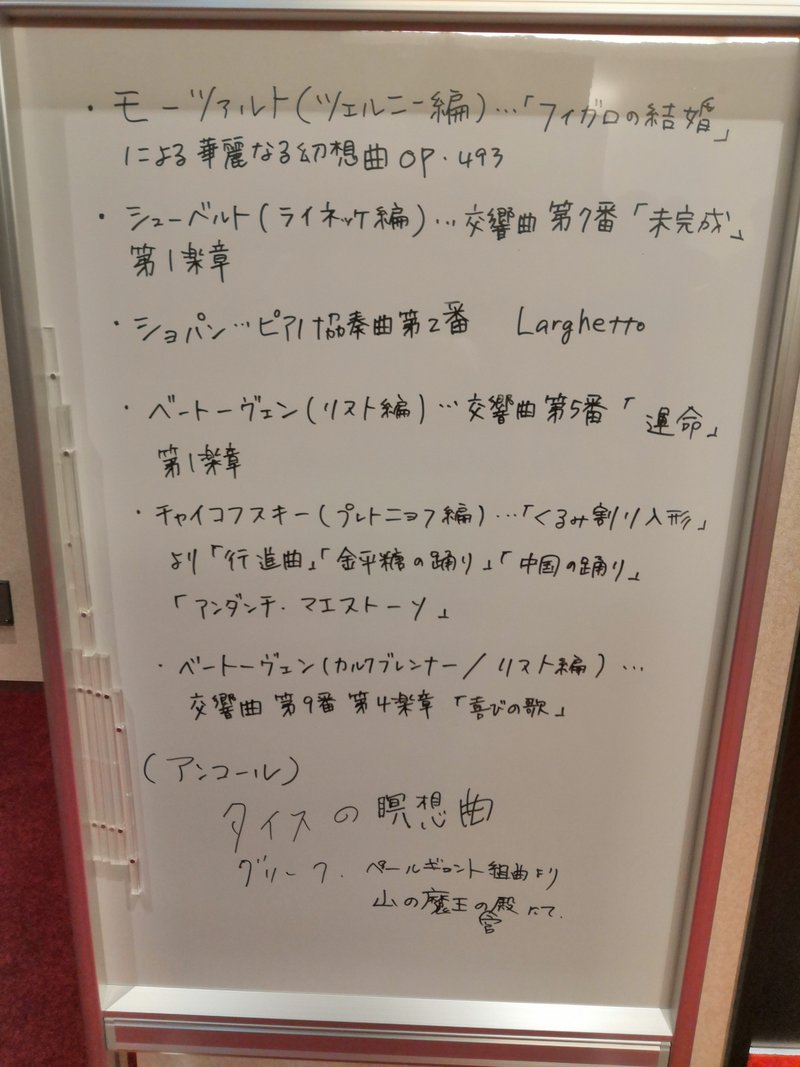 ・モーツァルト(ツェルニー編)…「フィガロの結婚」
による華麗なる幻想曲 OP.493
・シューベルト(ライネッケ編)…交響曲 第7番「未完成」
第1楽章
・ショパン…ピアノ協奏曲第2番 Larghetto
・ベートーヴェン(リスト編)…交響曲 第5番「運命」
第1楽章
・チャイコフスキー(プレトニョフ編)…「くるみ割り人形」
より「行進曲」「金平糖の踊り」「中国の踊り」
「アンダンテ・マエストーソ」
・ベートーヴェン(カルクブレンナー/リスト編)…
交響曲 第9番 第4楽章「喜びの歌」
(アンコール)
タイスの瞑想曲
グリーク. ペールギュント組曲より
山の魔王の宮殿にて.